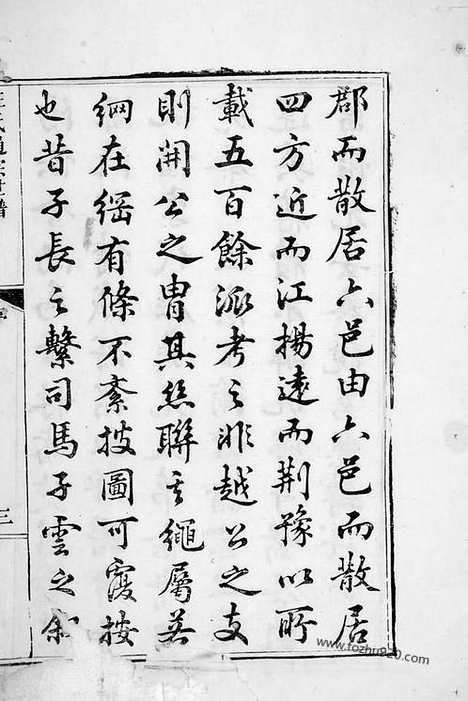 郡而散居六邑由六邑而散居
四方近而江揚遠而荆豫以所
載五百餘派考之非越公之支
則開公之胄其絲聯其繩屬若
網在綱有條不紊披圖可覆按
也昔子長之繫司馬子雲之叙
三
www.fozhu920.com